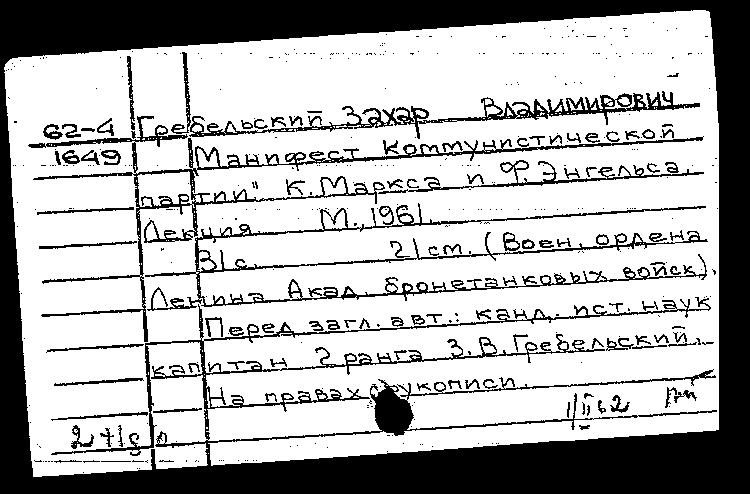 62-4 Гребельский, Захар Владимирович
1649 Манифест Коммунистической
партии" К. Маркса и Ф. Энгельса.
Лекция М., 1961.
31 с. 21 см. (Воен. ордена
Ленина Акад. бронетанковых войск).
Перед загл. авт.: канд. ист. наук
капитан 2 ранга З. В. Гребельский.
На правах рукописи.
1/II 62